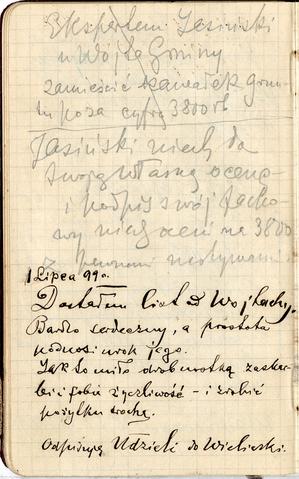 Ekspertem Jasiński
u Wójta Gminy
zamieścić kawałek grun-
tu poza cyfrą 3800 rb
Jasiński niech da
swoją własną ocenę
i podpis swój facho-
wy niech oceni na 3800
z pewnemi motywami
1 Lipca 99 o.
Dostałem list od Wojtachy.
Bardzo serdeczny, a prostota
podnosi urok jego.
Jak to miło drobnostką zaskar-
bić sobie życzliwość – i zrobić
pożytku trochę.
Odpisuję Udzieli do Wieliczki.